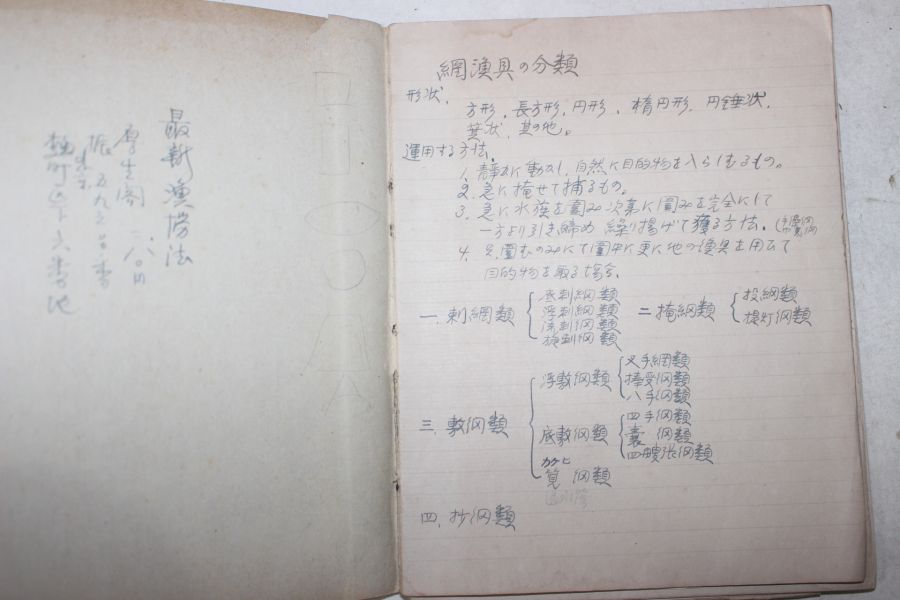 最新漁撈法
厚生閣 二、八〇円
振 東京 五九六〇〇番
麹町区下六番地
網漁具の分類
形状、
方形、長方形、円形、楕円形、円錘状、
箕状、其の他。
運用する方法、
1. 静かに動かし、自然に目的物を入らしむるもの。
2. 急に掩せて捕るもの。
3. 急に水族を圍み次第に圍みを完全にして
一方より引き締め 繰り揚げて獲る方法。
4. 只圍むのみにて圍中に更に他の漁具を用ひて
目的物を取る場合、
一. 刺網類
底刺網類
浮刺網類
流刺網類
旋刺網類
二 掩網類
投網類
提灯網類
三. 敷網類
浮敷網類
叉手網類
棒受網類
八手網類
底敷網類
四手網類
嚢 網類
四艘張網類
カケヒ
筧 網類
四. 抄網類